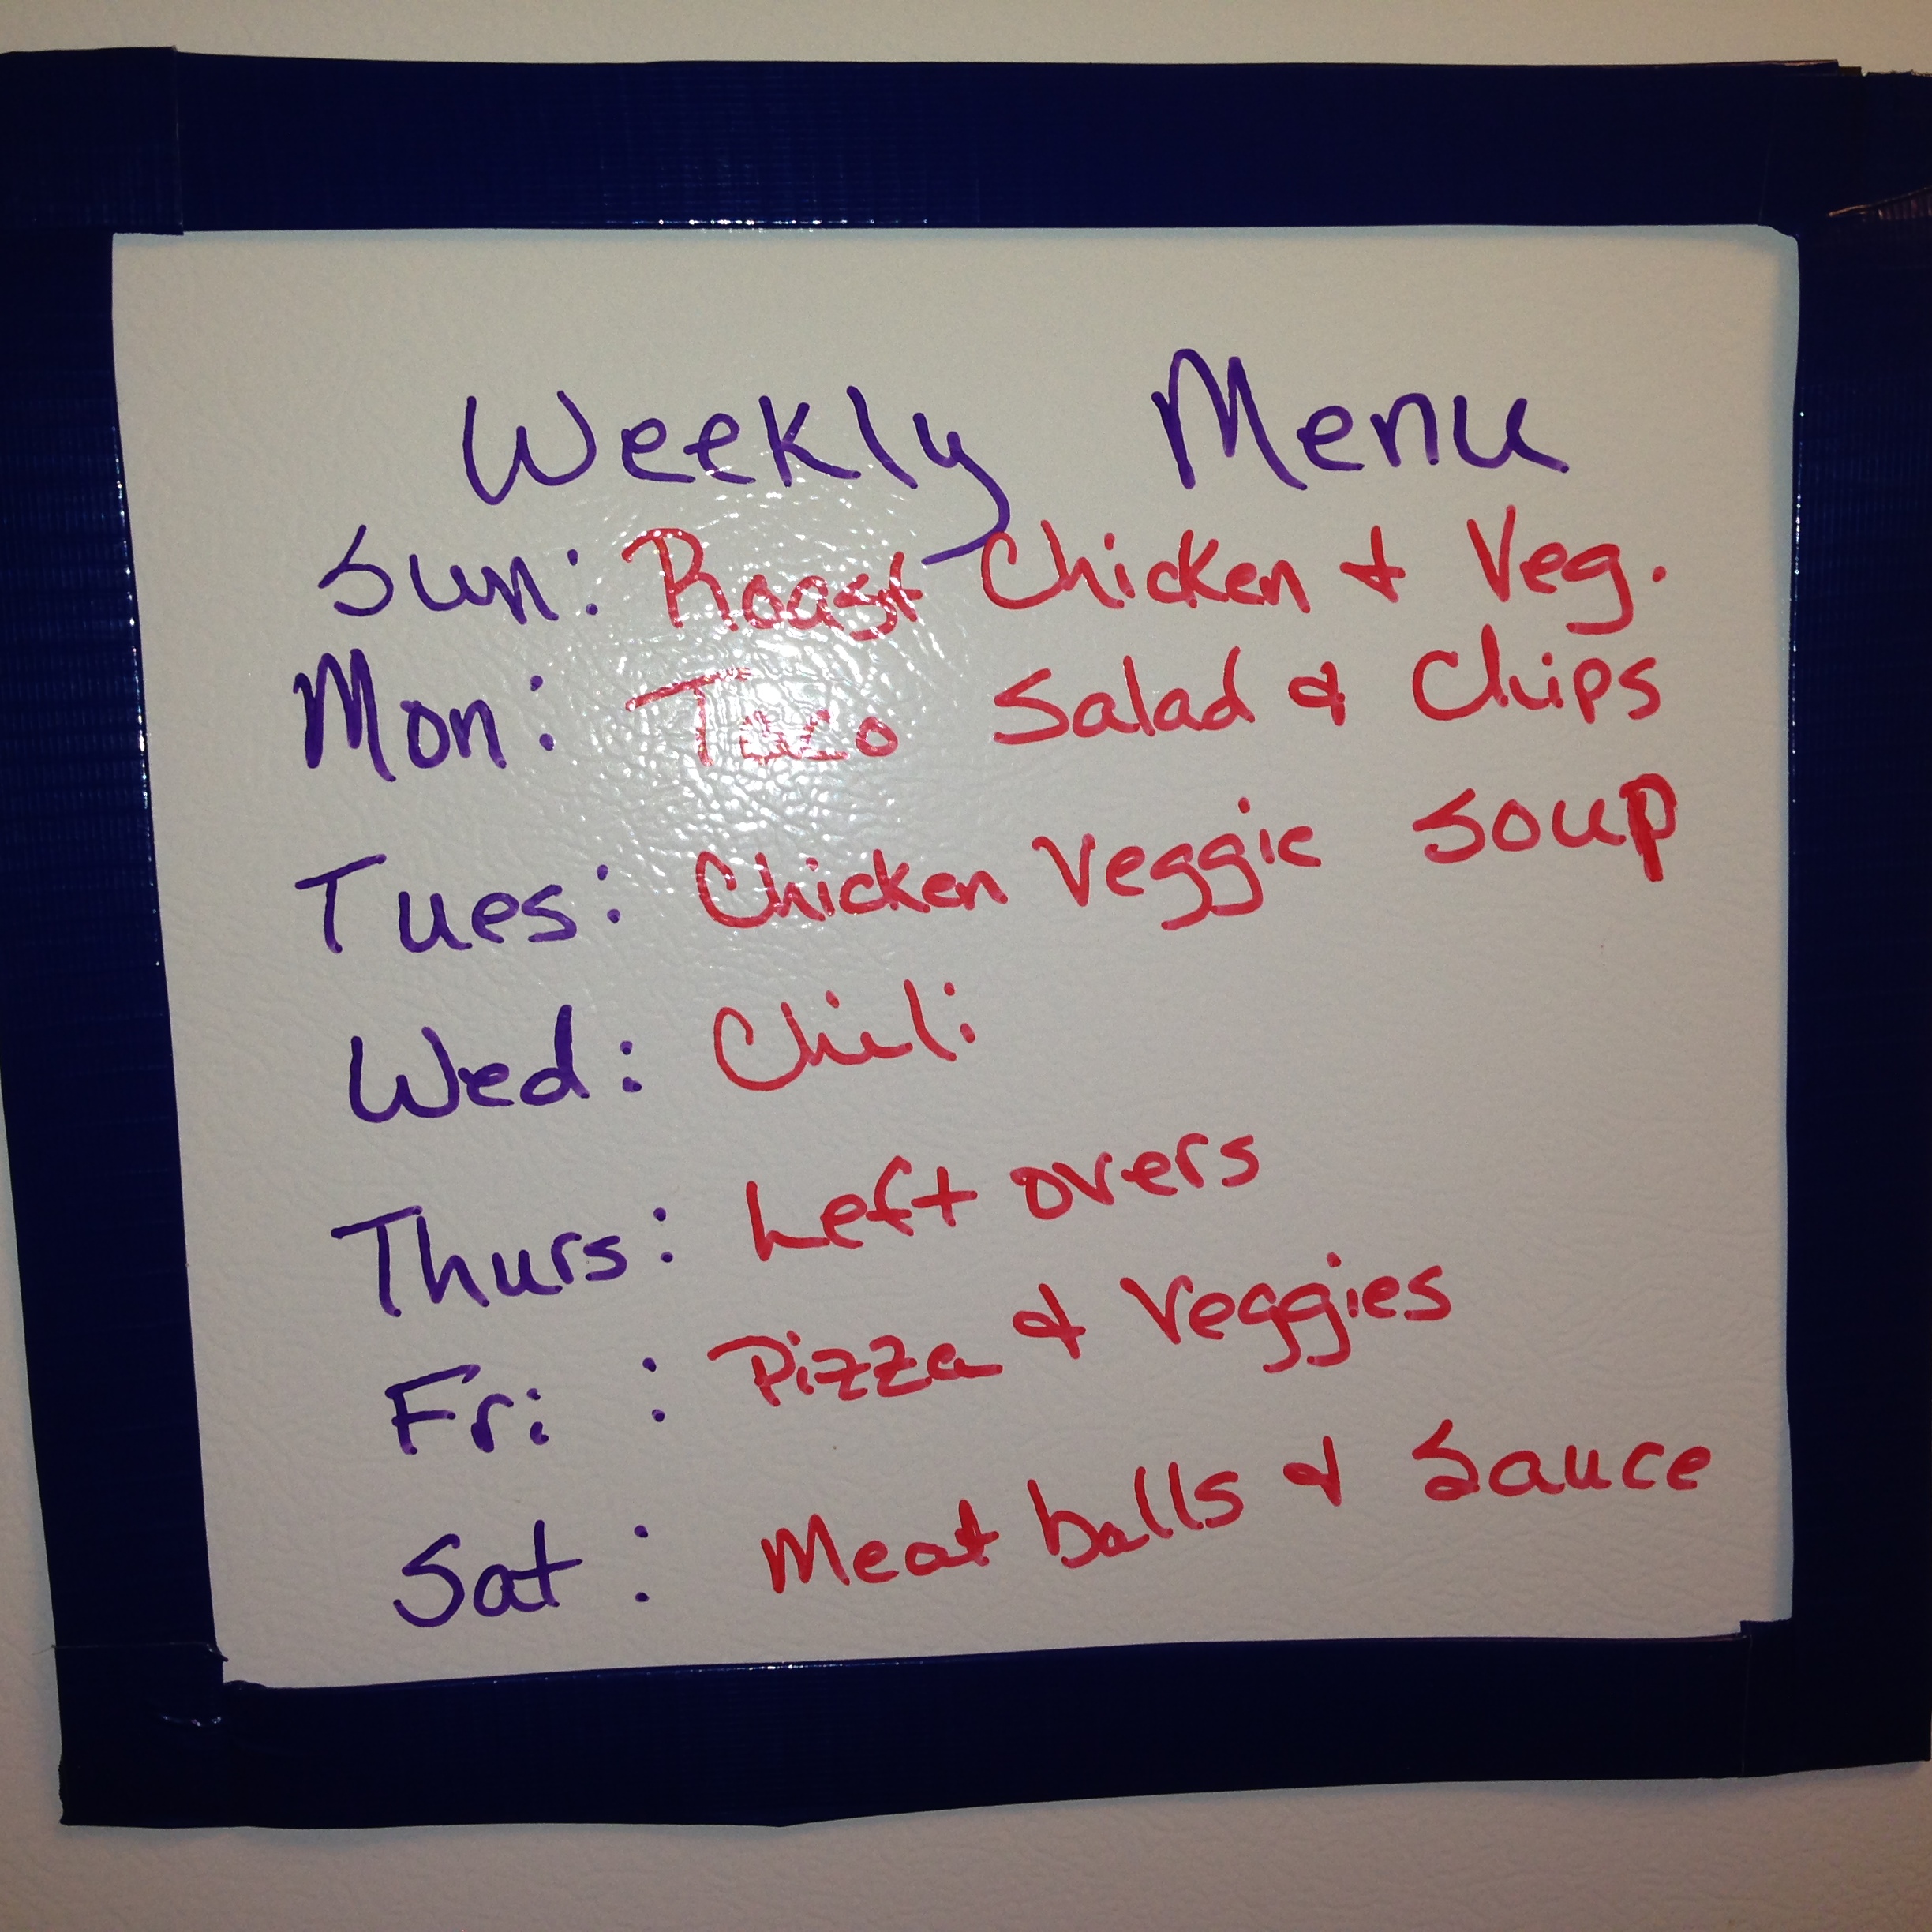 Weekly Menu
Sun: Roast Chicken & Veg.
Mon: Taco Salad & Chips
Tues: Chicken Veggie Soup
Wed: Chili
Thurs: Left overs
Fri : Pizza & Veggies
Sat : Meat balls & Sauce